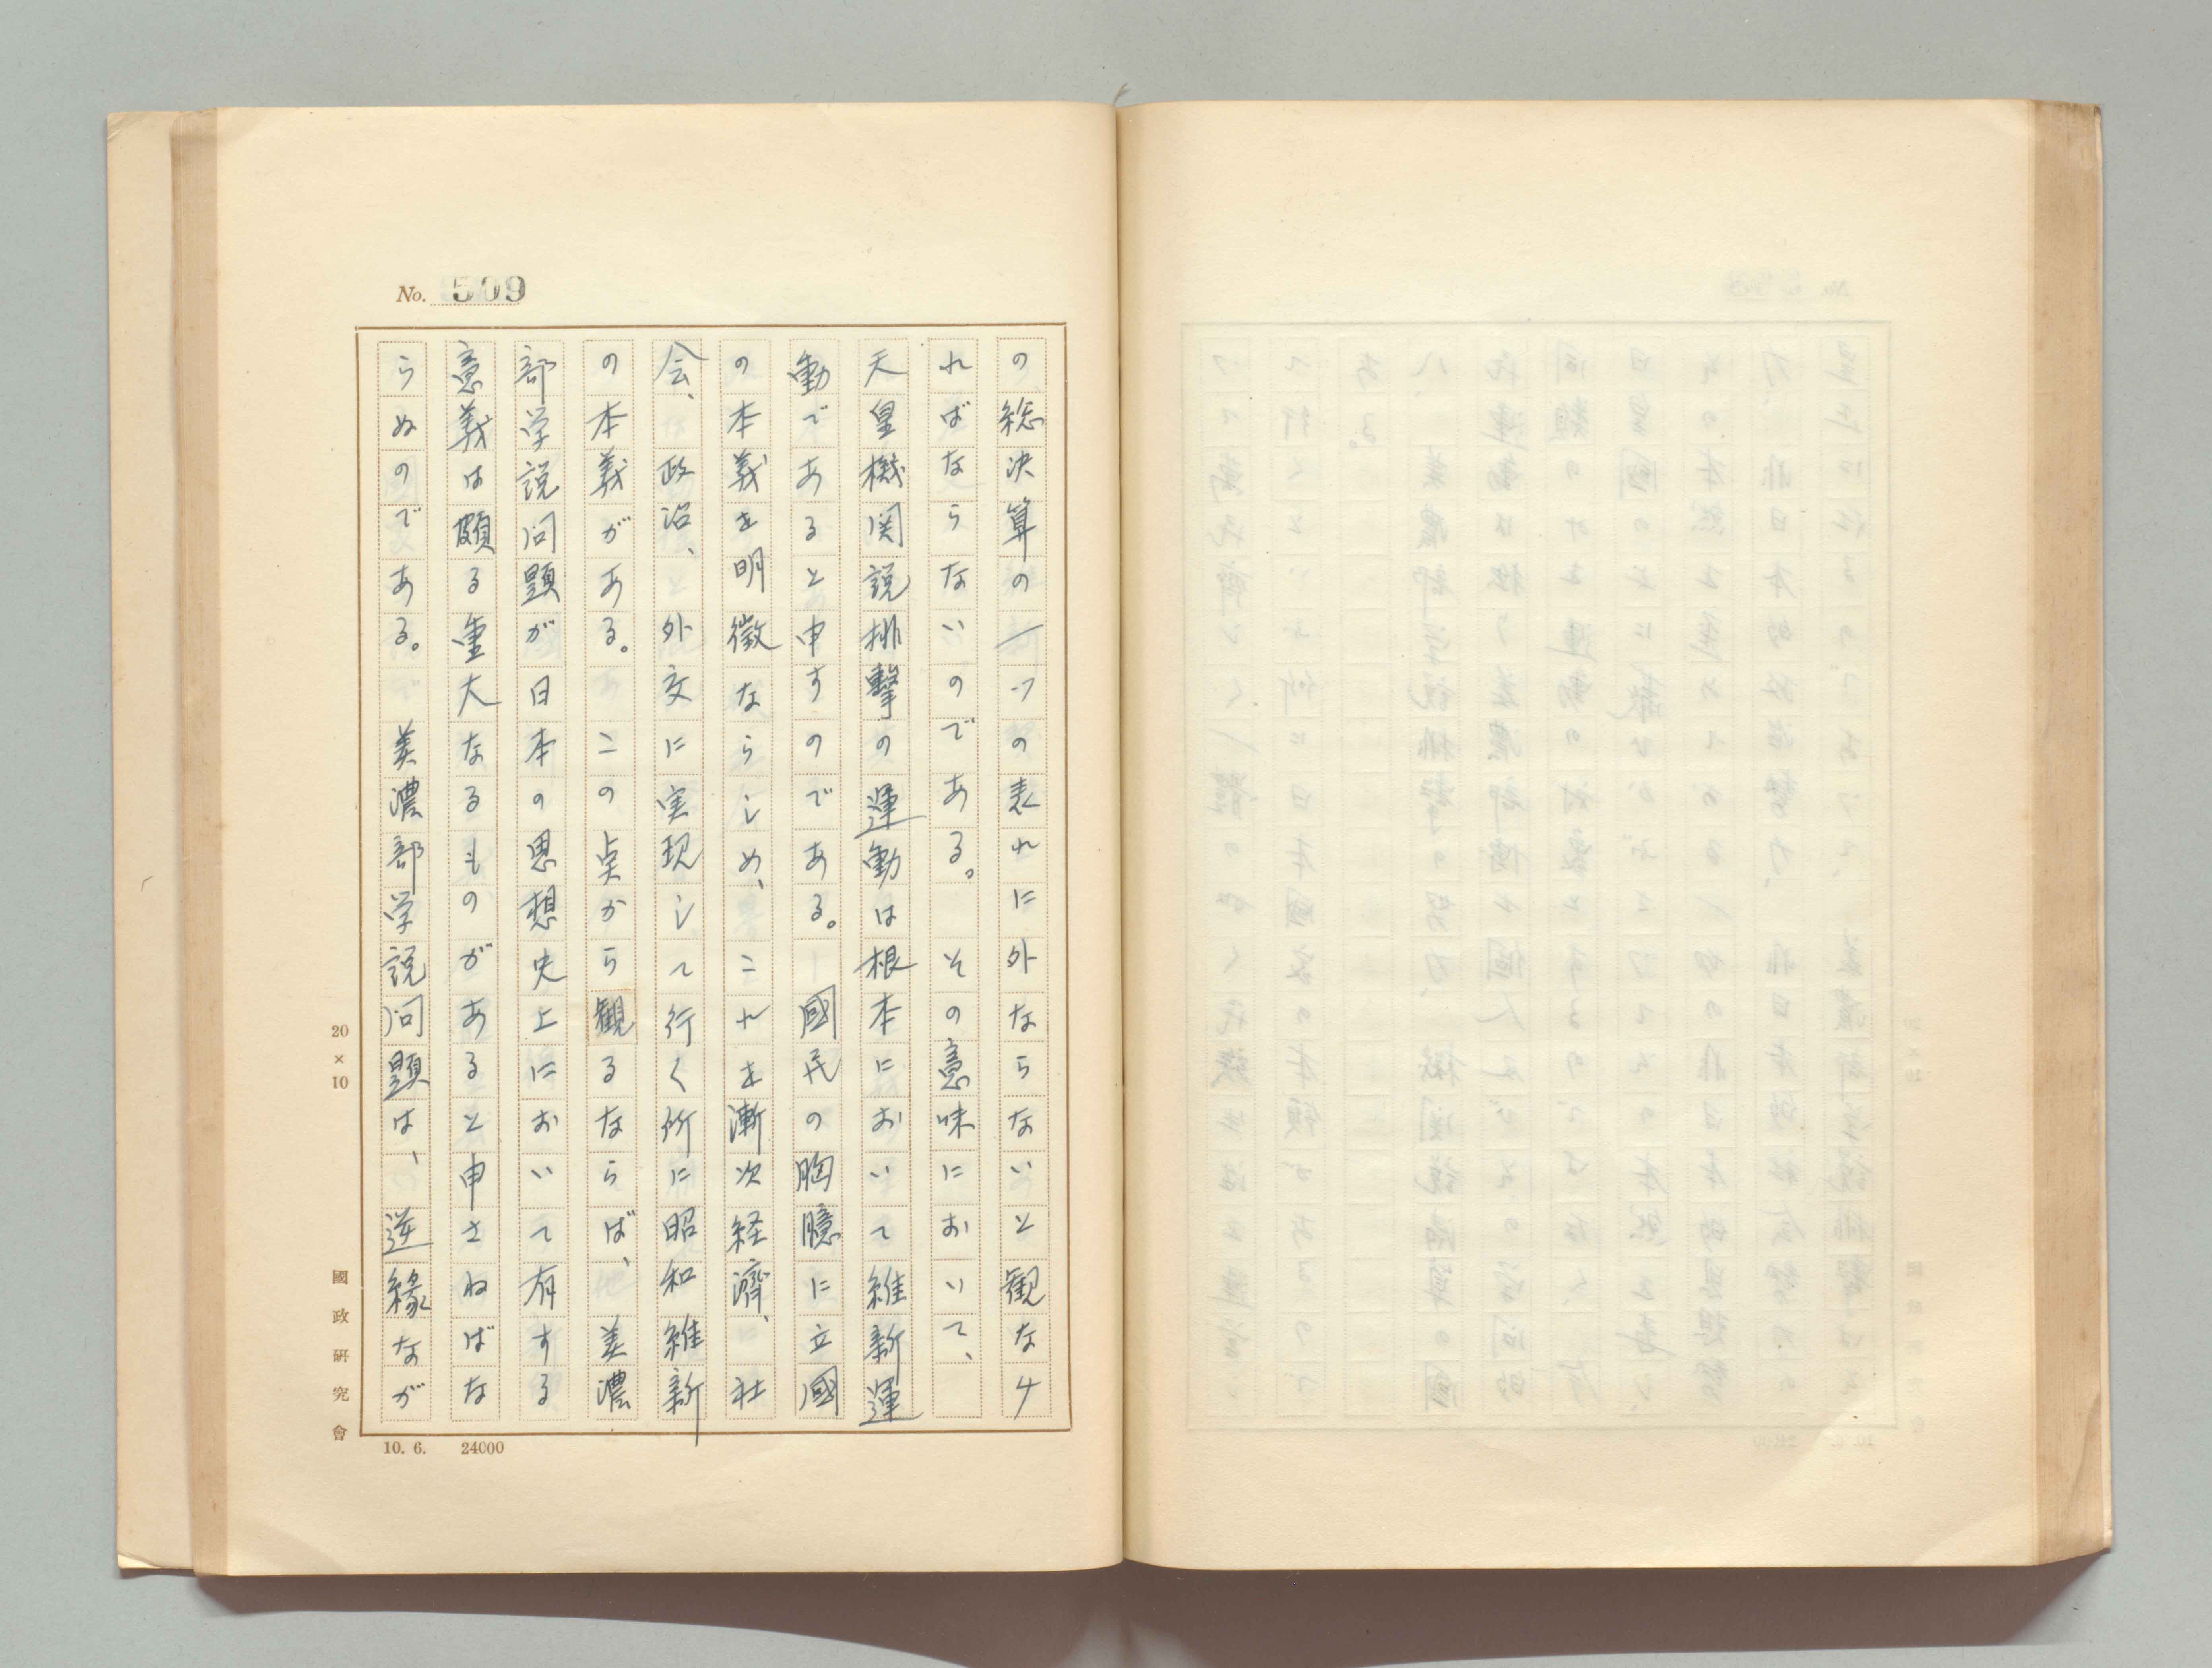 No. 509
の総決算の一つの表れに外ならないと観なけ
ればならないのである。その意味において、
天皇機関説排撃の運動は根本において維新運
動であると申すのである。國民の胸臆に立國
の本義を明徴ならしめ、これを漸次経濟、社
会、政治、外交に実現して行く所に昭和維新
の本義がある。この点から観るならば、美濃
部学説問題が日本の思想史上において有する
意義は頗る重大なるものがあると申さねばな
らぬのである。美濃部学説問題は、逆縁なが
20×10
國政研究會
10. 6. 24000